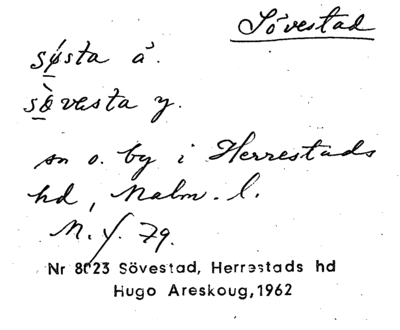 Sövestad
sø̀sta ä.
sø̀vesta y.
sn o. by i Herrestads
hd, Malm. l.
N. f. 79.
Nr 8023 Sövestad, Herrestads hd
Hugo Areskoug, 1962